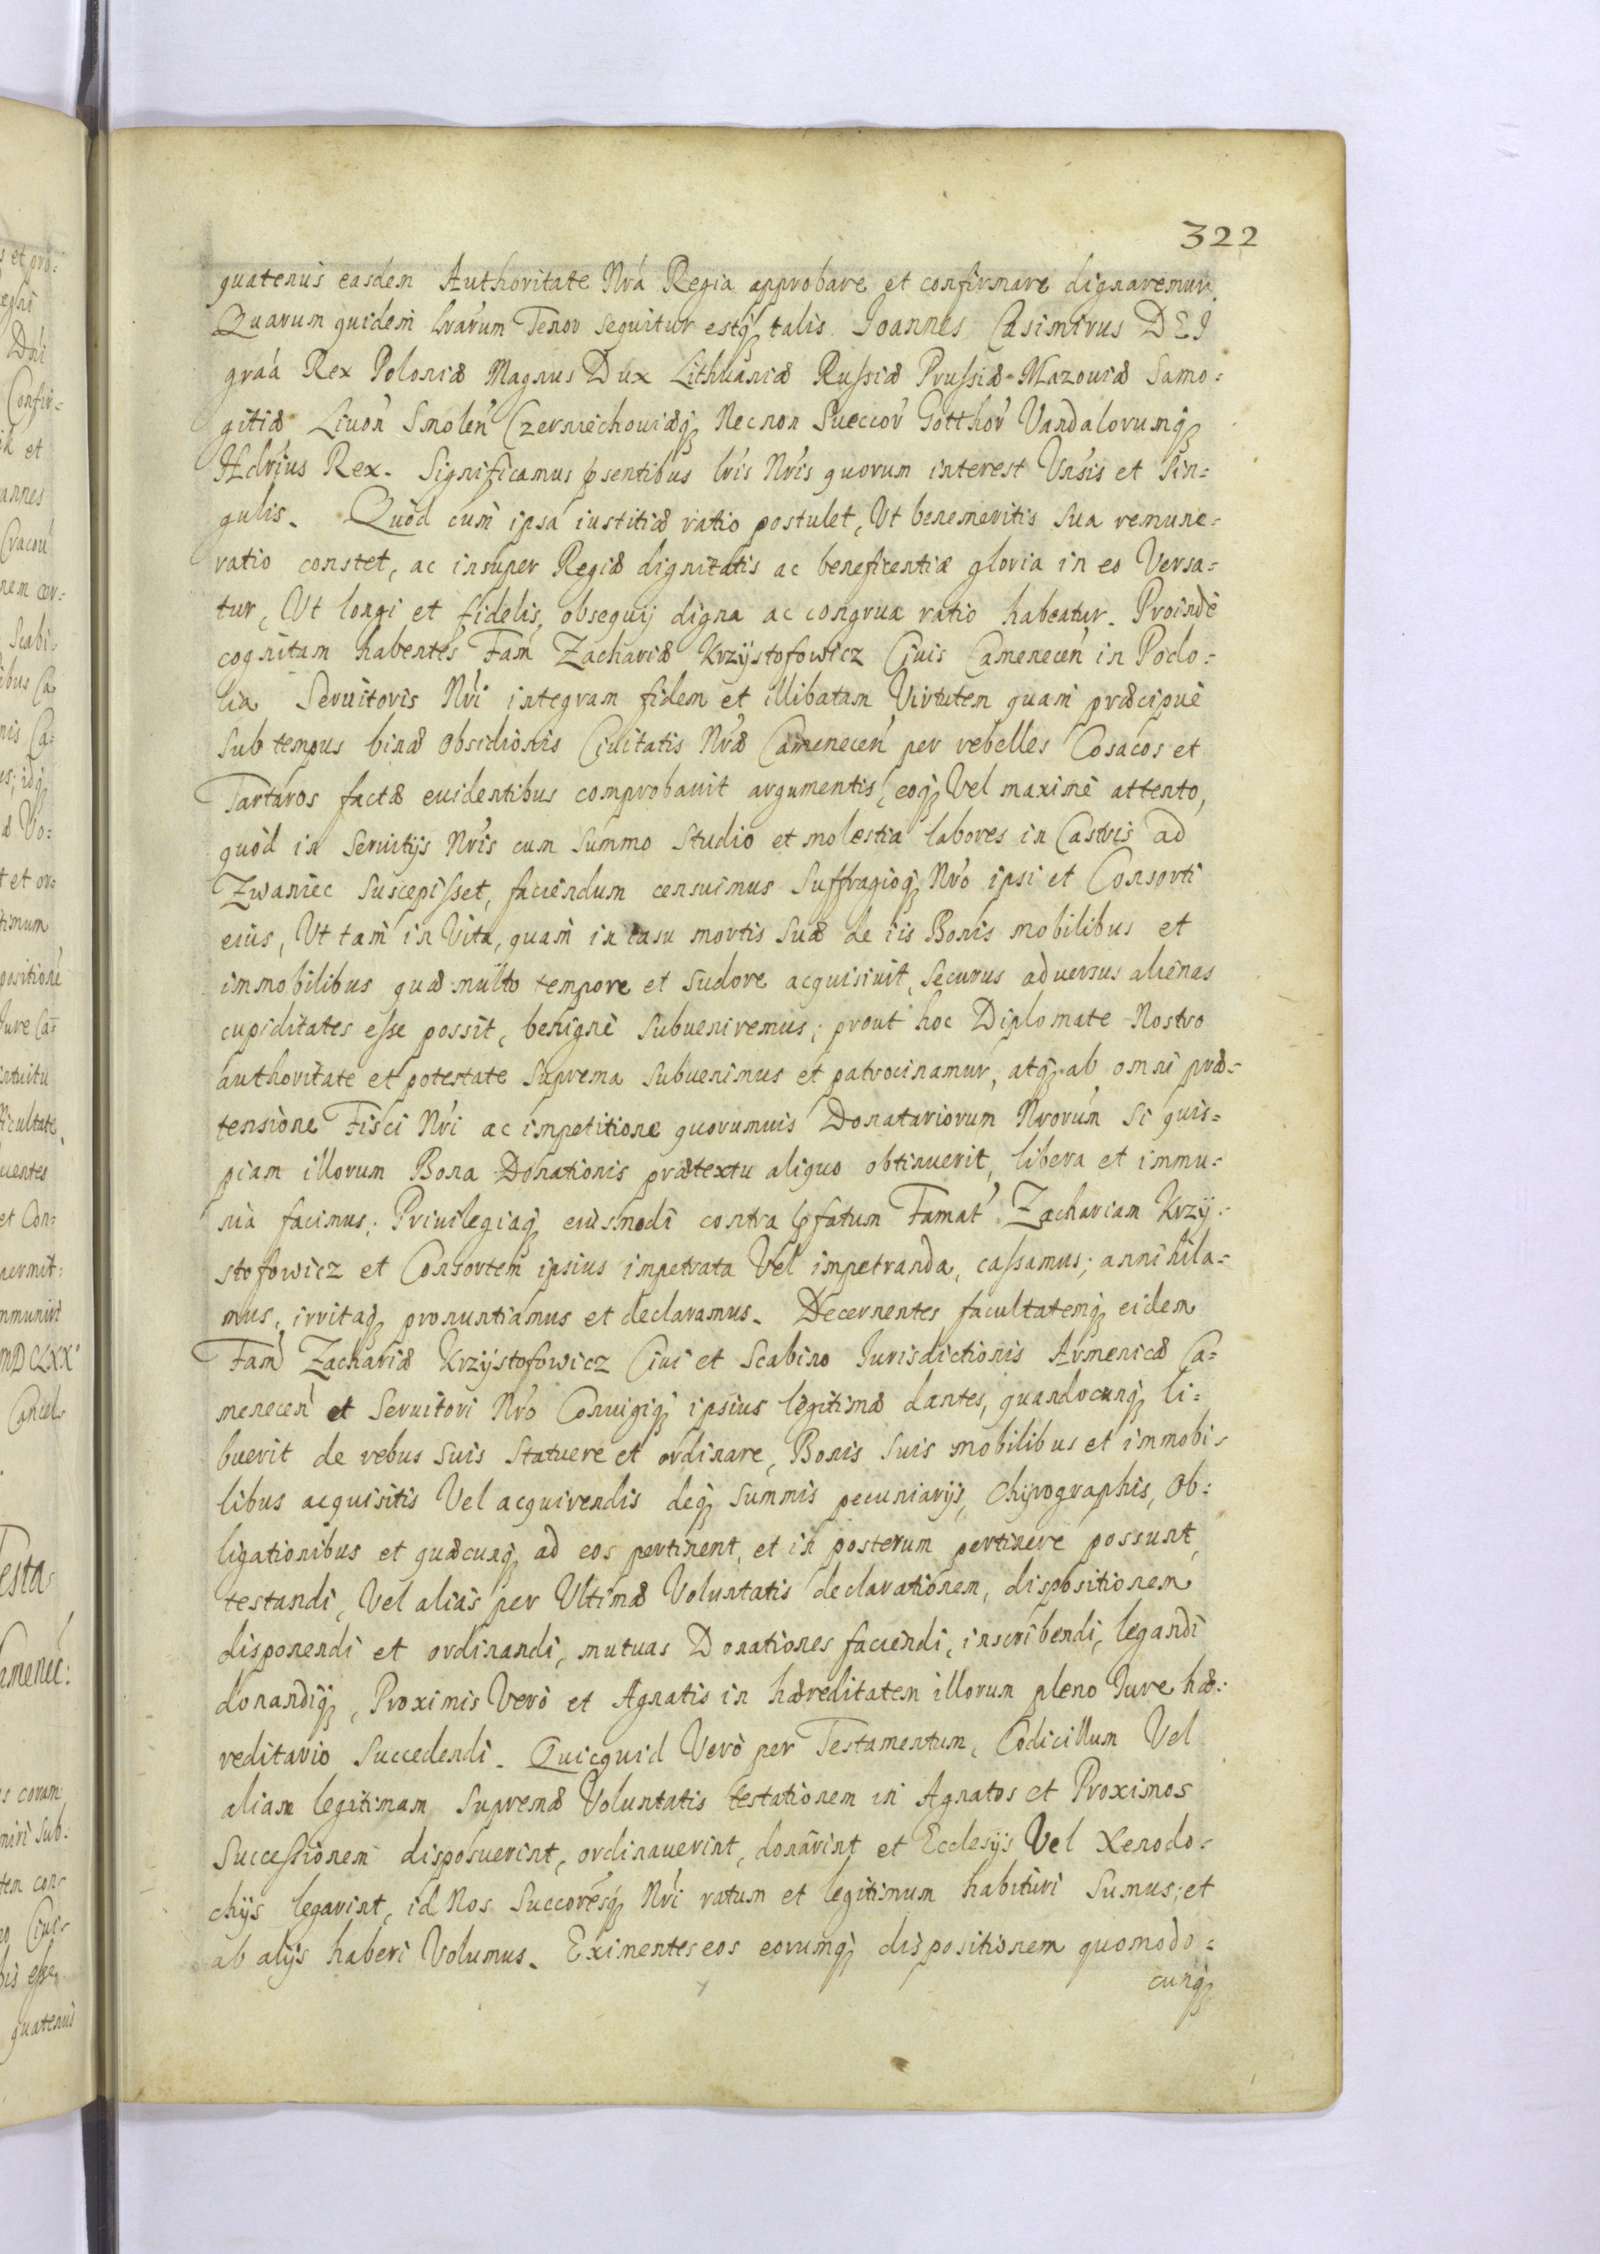 322
quatenus easdem Authoritate Nrá Regia approbare et confirmare dignaremur.
Quarum quidem lrárum Tenor sequitur estq; talis. Joannes Casimirus DEI
graá Rex Poloniæ Magnus Dux Lithuaniæ Russiæ Prussiæ Mazouiæ Samo=
gitiæ Liuoń Smoleń Czerniechouiæq; Necnon Sueccoŕ Gotthoŕ Vandalorumq;
Hdrius Rex. Significamus psentibus lris Nris quorum interest Vnsis et Sin=
gulis. Quod cum ipsa iustitiæ ratio postulet, Vt benemeritis sua remune=
ratio constet, ac insuper Regiæ dignitatis ac beneficentiæ gloria in eo Versa=
tur, Ut longi et fidelis, obsequij digna ac congrua ratio habeatur. Proinde
cognitam habentes Fam Zachariæ Krzysztofowicz Ciuis Cameneceń in Podo=
lia Seruitoris Nri integram fidem et illibatam Virtutem quam præcipue
sub tempus binæ obsidionis Ciuitatis Nræ Cameneceń per rebelles Cosacos et
Tartaros factæ euidentibus comprobauit argumentis, eoq; Vel maxime attento,
quòd in seruitijs Nris cum summo studio et molestia labores in Castris ad
Zwaniec suscepisset, faciendum censuimus Suffragioq; Nro ipsi et Consorti
eius, Vt tam in Vita, quam in casu mortis suæ de iis Bonis mobilibus et
immobilibus quæ multo tempore et sudore acquisiuit, securus aduersus alienas
cupiditates esse possit, benignè subueniremus; prout hoc Diplomate Nostro
authoritate et potestate suprema subuenimus et patrocinamur, atq; ab omni præ=
tensione Fisci Nri ac impetitione quorumuis Donatariorum Nrorum si quis=
piam illorum Bona Donationis prætextu aliquo obtinuerit, libera et immu=
nia facimus; Priuilegiaq; eiusmodi contra pfatum Famat Zachariam Krzy=
stofowicz et Consortem ipsius impetrata Vel impetranda, cassamus; annihila=
mus, irritaq; pronuntiamus et declaramus. Decernentes facultatemq; eidem
Fam Zachariæ Krzystofowicz Ciui et Scabino Iurisdictionis Armenicæ Ca=
meneceń et Seruitori Nro Conuigiq; ipsius legitimæ dantes, quandocunq; li=
buerit de rebus suis statuere et ordinare, Bonis suis mobilibus et immobi=
libus acquisitis Vel acquirendis deq; summis pecuniarijs, chyrographis, ob=
ligationibus et quæcunq; ad eos pertinent, et in posterum pertinere possunt,
testandi, Vel alias per Ultimæ Voluntatis declarationem, dispositionem
disponendi et ordinandi, mutuas Donationes faciendi, inscribendi, legandi
donandiq;, Proximis Verò et Agnatis in hæreditatem illorum pleno Iure hæ=
reditario succedendi. Quicquid Verò per Testamentum, Codicillum Vel
aliam legitimam supremæ Voluntatis testationem in Agnatos et Proximos
Successionem disposuerint, ordinauerint, donârint et Ecclesijs Vel Xenodo=
chijs legarint, id Nos Succoresq; Nri ratum et legitimum habituri sumus; et
ab alijs haberi Volumus. Eximentes eos eorumq; dispositionem quomodo=
cunq;